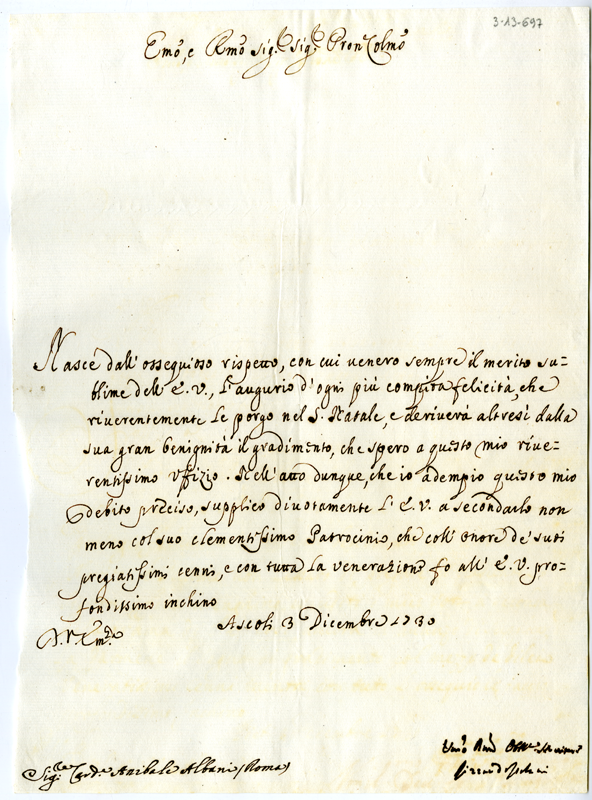 3-13-697
Emo, e Rmo Sig.r Sig.r Pron Colmo
Nasce dall' ossequioso rispetto, con cui venero sempre il merito su=
blime dell' E. V., l'augurio d'ogni più compita felicità, che
riverentemente le porgo nel S. Natale, e deriverà altresì dalla
sua gran benignità il gradimento, che spero a questo mio rive=
rentissimo Vffizio. Nell' atto dunque, che io adempio questo mio
debito preciso, supplico divotamente l' E. V. a secondarlo non
meno col suo clementissimo Patrocinio, che coll' onore de' suoi
pregiatissimi cenni, e con tutta la venerazione fo all' E. V. pro=
fondissimo inchino
Ascoli 3 Dicembre 1730
D. V. Em.za
Sig.r Card.e Anibale Albani (Roma)